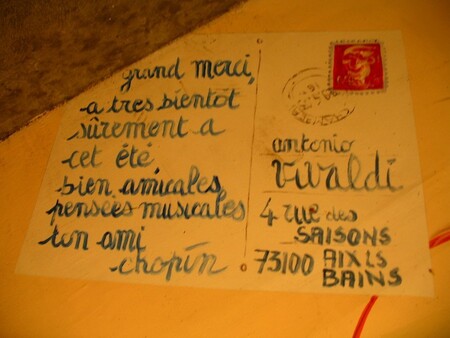 grand merci,
a tres bientôt
sûrement a
cet été
bien amicales
pensées musicales
ton ami
chopin
antonio
Vivaldi
4 rue des
SAISONS
73100 AIXLS
BAINS